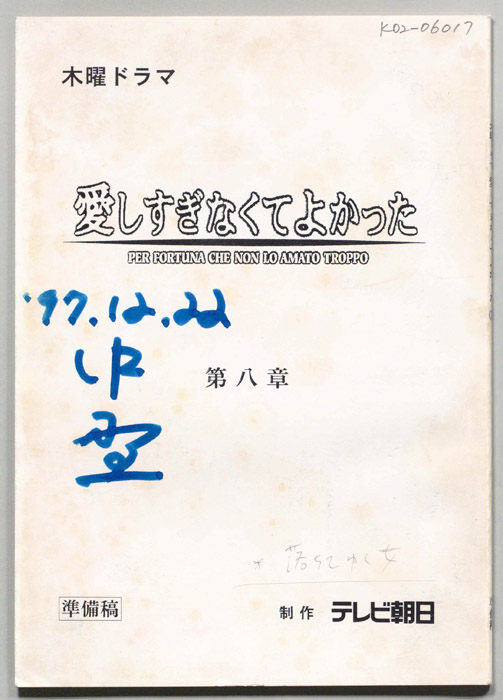 K02-06017
木曜ドラマ
愛しすぎなくてよかった
PER FORTUNA CHE NON LO AMATO TROPPO
'97.12.22
第八章
準備稿
制作 テレビ朝日